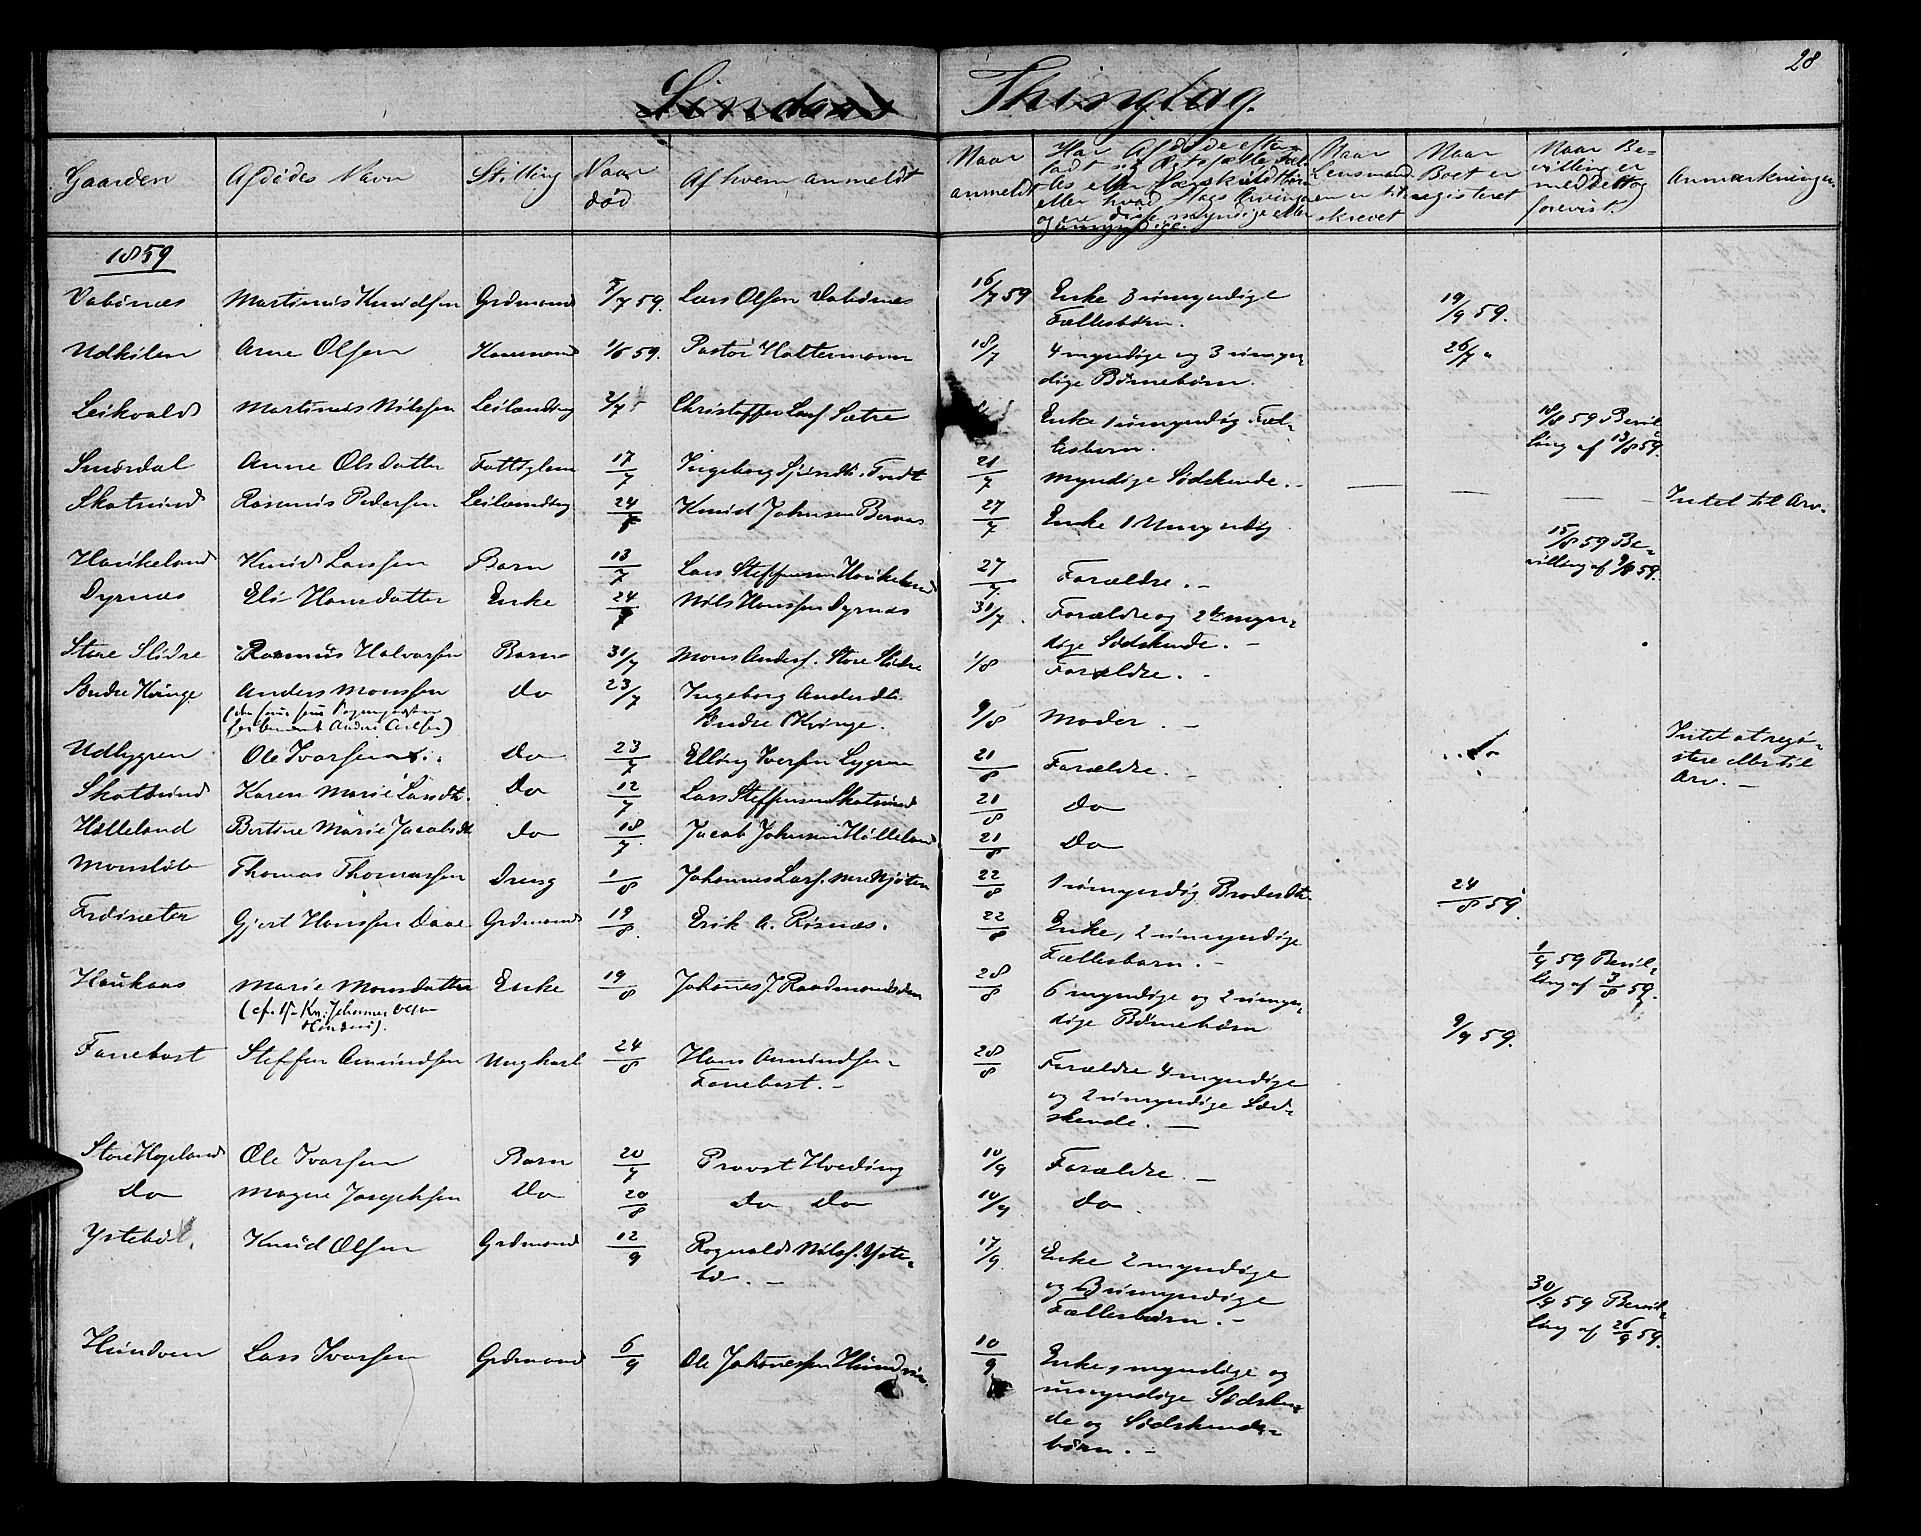 28
Lindaas Thinglag.
Gaarden | Afdødes Navn | Stilling | Naar død | Af hvem anmeldt | Naar anmeldt | Har Afdøde efterladt sig Ægtefælle, Fælles eller Særskildtbørn eller hvad Slags Arvinger og ere disse myndige eller umyndige. | Naar Lensmanden er tilskrevet | Naar Boet er registeret | Naar Bevilling er meddelt og forevist. | Anmærkninger
1859
Vabönæs | Martinus Knudsen | Grdmand | 5/7 59. | Lars Olsen Vabönæs | 16/7 59 | Enke 3 umyndige Fællesbørn. | 19/9 59.
Udkilen | Arne Olsen | Kaarmand | 1/6 59. | Pastor Haltermann | 18/7 | 4 myndige og 3 umyndige Børnebørn. | 26/7 "
Leikvold | Martinus Nilssen | Leilending | 2/7 | Christoffer Larss. Sætre | Enke 1 umyndig Fællesbarn. | 18/8 59 Bevilling af 13/8 59.
Smørdal | Anne Olsdatter | Fattiglem | 17/7 | Ingeborg Tvedt | 21/7 | myndige Sødskende. — | Intet til Arv.
Skotsund | Rasmus Pedersen | Leilænding | 24/7 | Knud Johnsen Bernæs | 27/7 | Enke 1 Umyndig | 15/8 59 Bevilling af 9/8 59.
Haukeland | Knud Larssen | Barn | 13/7 | Lars Steffensen Haukeland | 27/7 | Forældre. —
Dyrnæs | Eli Hansdatter | Enke | 24/7 | Nils Hanssen Dyrnæs | 31/7 | Forældre og 2 umyndige Sødskende. —
Store Slidre | Rasmus Halvorsen | Barn | 31/7 | Mons Anders. Store Slidre | 1/8 | Forældre. —
Indre Kvinge | Anders Monssen | Do | 23/7 | Ingeborg Andersdtr. Indre Kvinge. | 9/8 | Moder. —
Udlygren | Ole Ivarsen | Do | 23/7 | Elling Iversen Lygren | 21/8 | Forældre. — | Intet at registere eller til Arv. —
Skotsund | Karen Marie Larsdtr. | Do | 12/7 | Lars Steffensen Skotsund | 21/8 | Do
Hölleland | Bertine Marie Jacobsdtr | Do | 18/7 | Jacob Johnsen Hölleland | 21/8 | Do
Monslöb | Thomas Thomassen | Dreng | 1/8 | Johannes Larss. Njöten | 22/8 | 1 umyndig Brodersdtr. | 24/8 59.
Gjert Hanssen Daae | Grdmand | 19/8. | Erik A. Risnæs. | 22/8 | Enke, 2 umyndige Fællesbørn. — | 1/9 59 Bevilling af 3/8 59.
Haukaas | Marie Monsdatter | Enke | 19/8 | Johannes J. | 28/8 | 6 myndige og 2 umyndige Børnebørn | 9/9 59.
Fonebost | Steffen Amundsen | Ungkarl | 24/8 | Hans Amundsen Fonebost. — | 28/8 | Forældre 4 myndige og 2 umyndige Sødskende. —
Store Hopeland | Ole Ivarsen | Barn | 20/7 | Provst Hveding | 10/9 | Forældre. —
Do | Magne Josephsen | Do | 20/8 | Do Do | 10/9 | Do.
Ystebö. | Knud Olsen | Grdmand | 12/9 | Rognald Nilss. Ystebö. — | 17/9. | Enke 2 myndige og 3 umyndige Fællesbørn. — | 30/9 59 Bevilling af 26/9 59.
Hundven | Lars Ivarsen | Grdmand | 6/9 | Ole Johannessen Hundven. | 10/9 | Enke, myndige og umyndige Sødskende og Sødskendebørn. —